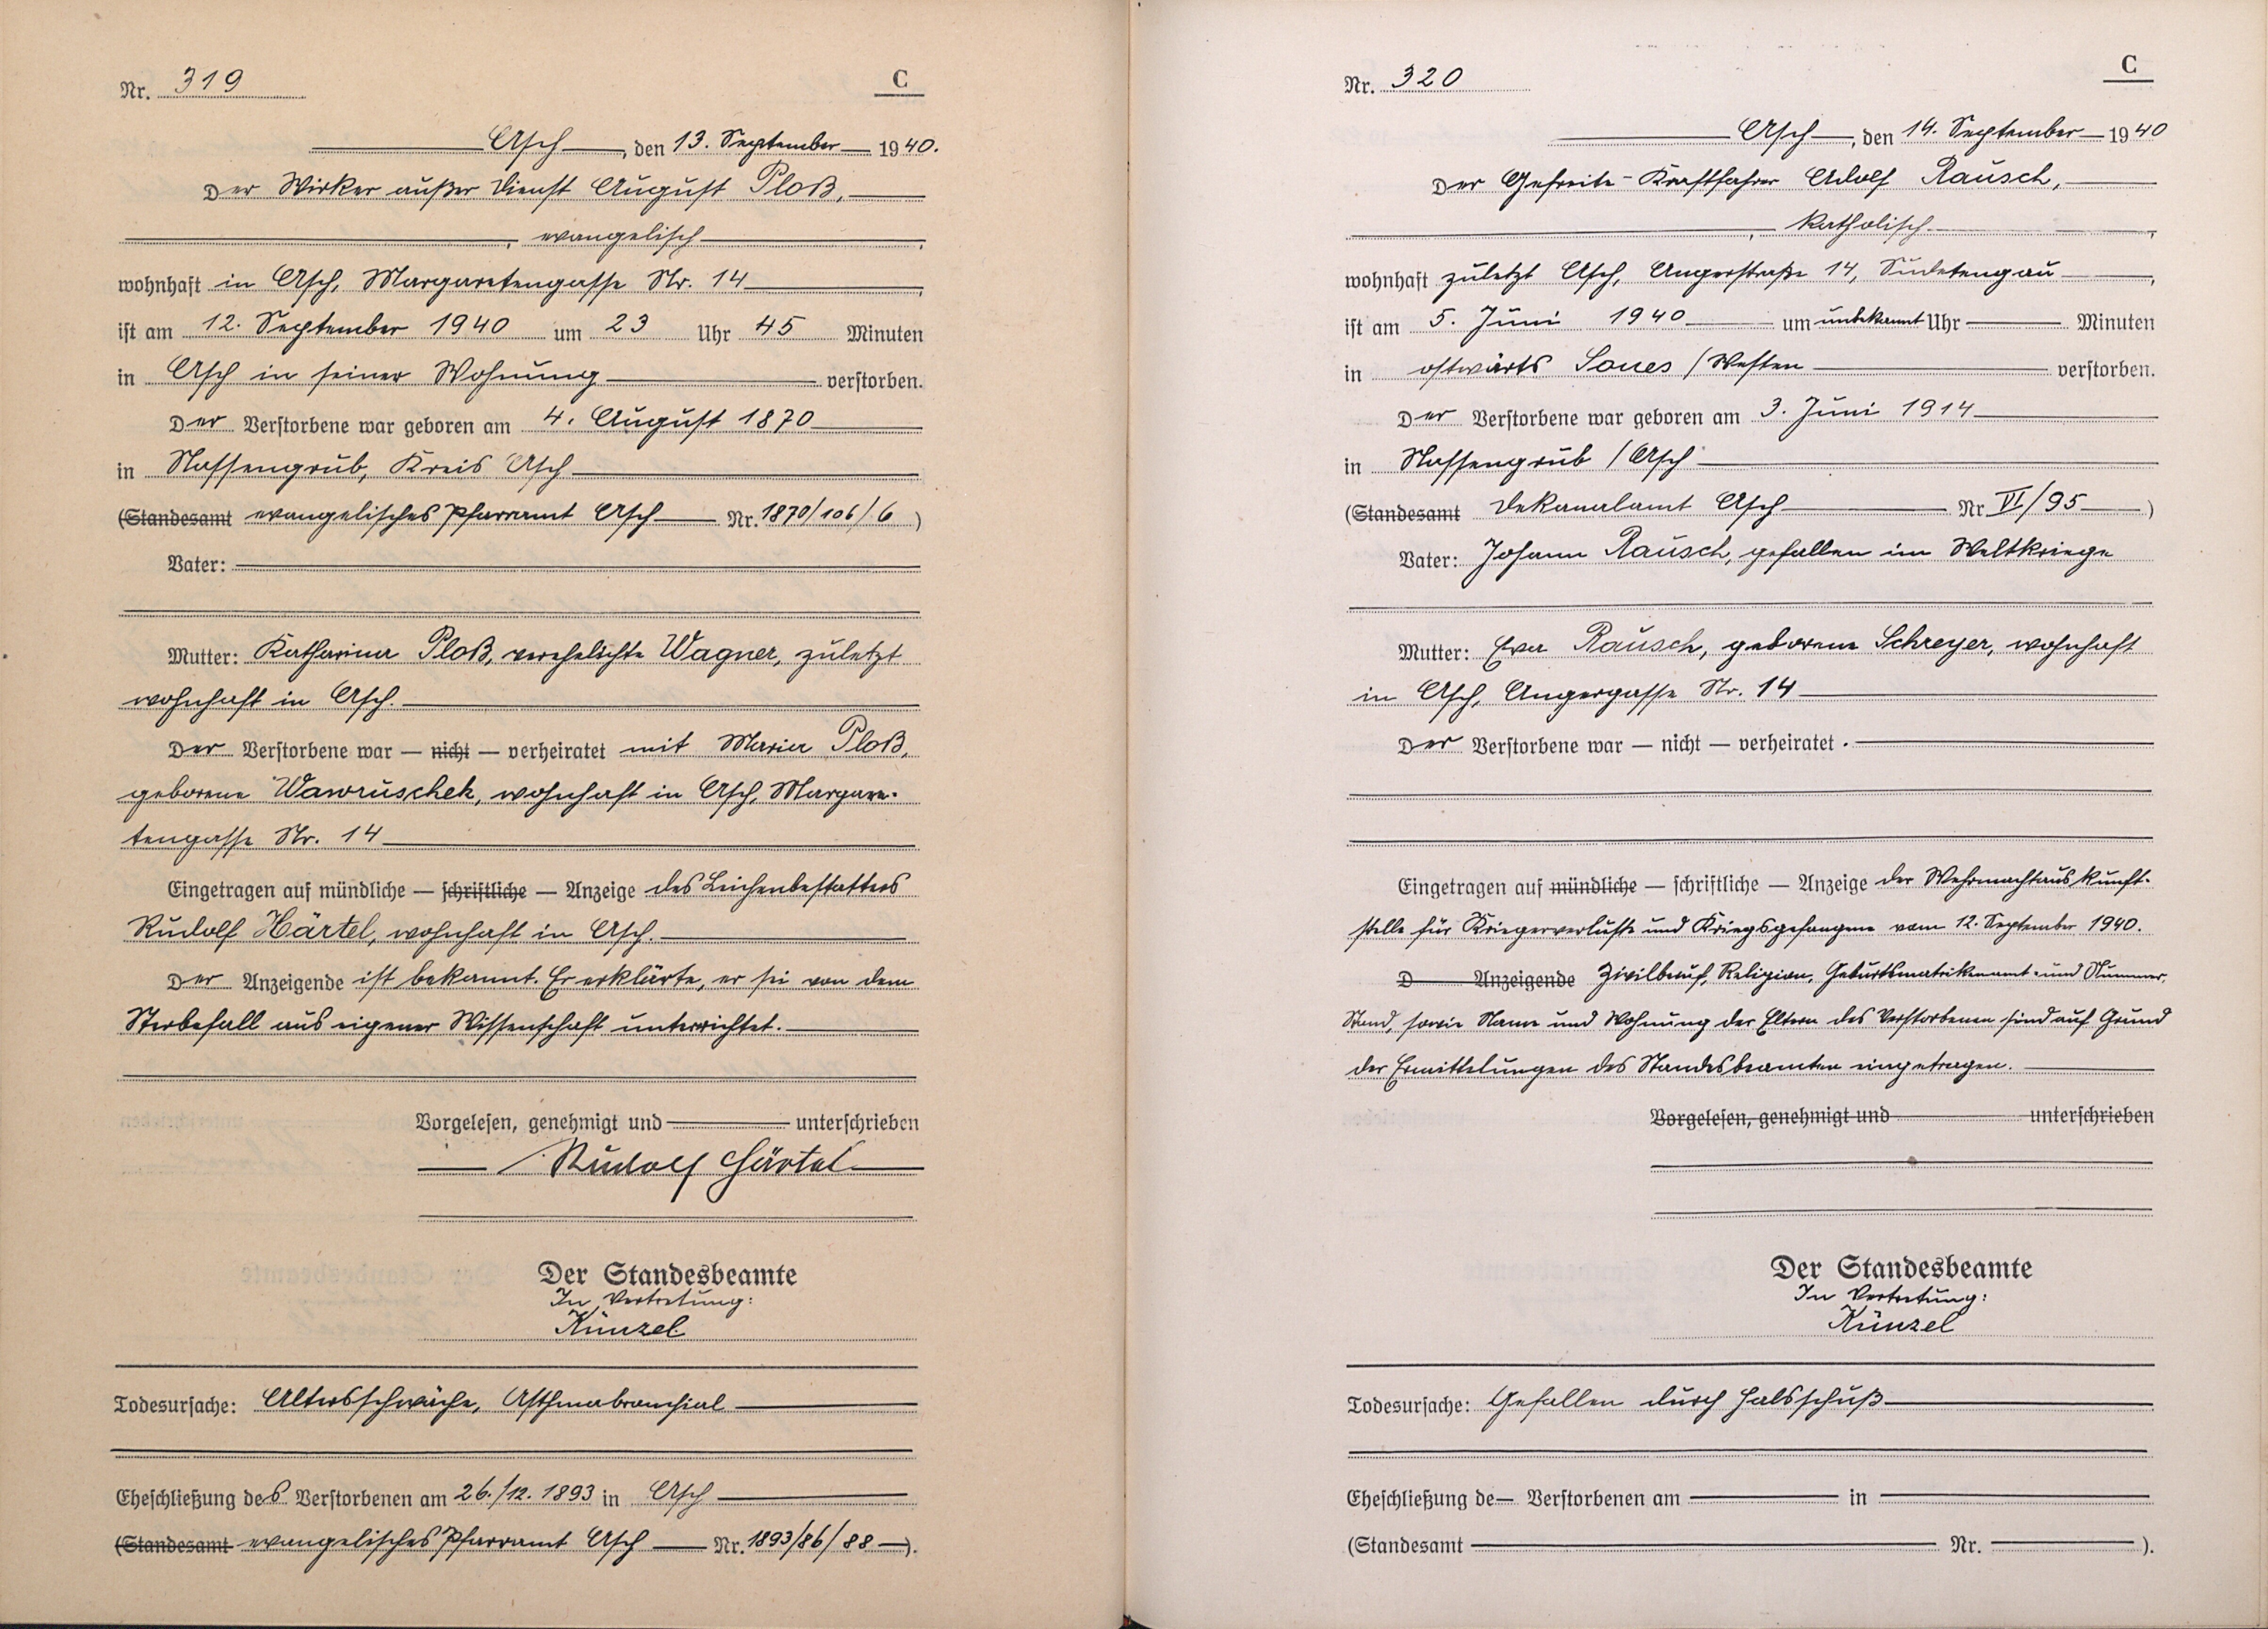 Nr. 319
C
Asch, den 13. September 1940.
Der Wirker außer Dienst August Ploß,
, evangelisch,
wohnhaft in Asch, Margaretengasse Nr. 14,
ist am 12. September 1940 um 23 Uhr 45 Minuten
in Asch in seiner Wohnung verstorben.
Der Verstorbene war geboren am 4. August 1870
in Nassengrub, Kreis Asch
(Standesamt evangelisches Pfarramt Asch Nr. 1870/106/6)
Vater:
Mutter: Katharina Ploß, verehelichte Wagner, zuletzt
wohnhaft in Asch.
Der Verstorbene war — nicht — verheiratet mit Maria Ploß,
geborene Wawruschek, wohnhaft in Asch, Margare-
tengasse Nr. 14
Eingetragen auf mündliche — schriftliche — Anzeige des Leichenbestatters
Rudolf Härtel, wohnhaft in Asch.
Der Anzeigende ist bekannt. Er erklärte, er sei von dem
Sterbefall aus eigener Wissenschaft unterrichtet.
Vorgelesen, genehmigt und unterschrieben
Rudolf Härtel
Der Standesbeamte
In Vertretung:
Künzel
Todesursache: Altersschwäche, Asthmabronchial
Eheschließung des Verstorbenen am 26./12. 1893 in Asch
(Standesamt evangelisches Pfarramt Asch Nr. 1893/86/88).
Nr. 320
C
Asch, den 14. September 1940
Der Gefreite-Kraftfahrer Adolf Rausch,
, katholisch,
wohnhaft zuletzt Asch, Angerstraße 14, Sudetengau,
ist am 5. Juni 1940 um unbekannt Uhr Minuten
in ostwärts Soues / Westen verstorben.
Der Verstorbene war geboren am 3. Juni 1914
in Nassengrub / Asch
(Standesamt Dekanalamt Asch Nr VI/95)
Vater: Johann Rausch, gefallen im Weltkriege
Mutter: Eva Rausch, geborene Schreyer, wohnhaft
in Asch, Angergasse Nr. 14
Der Verstorbene war — nicht — verheiratet.
Eingetragen auf mündliche — schriftliche — Anzeige der Wehrmachtauskunft-
stelle für Kriegerverluste und Kriegsgefangene vom 12. September 1940.
D Anzeigende Zivilberuf, Religion, Geburtsmatrikenamt- und Nummer,
Stand, sowie Name und Wohnung der Eltern des Verstorbenen sind auf Grund
der Ermittelungen des Standesbeamten eingetragen.
Vorgelesen, genehmigt und unterschrieben
Der Standesbeamte
In Vertretung:
Künzel
Todesursache: Gefallen durch Halsschuß
Eheschließung de Verstorbenen am in
(Standesamt Nr. ).